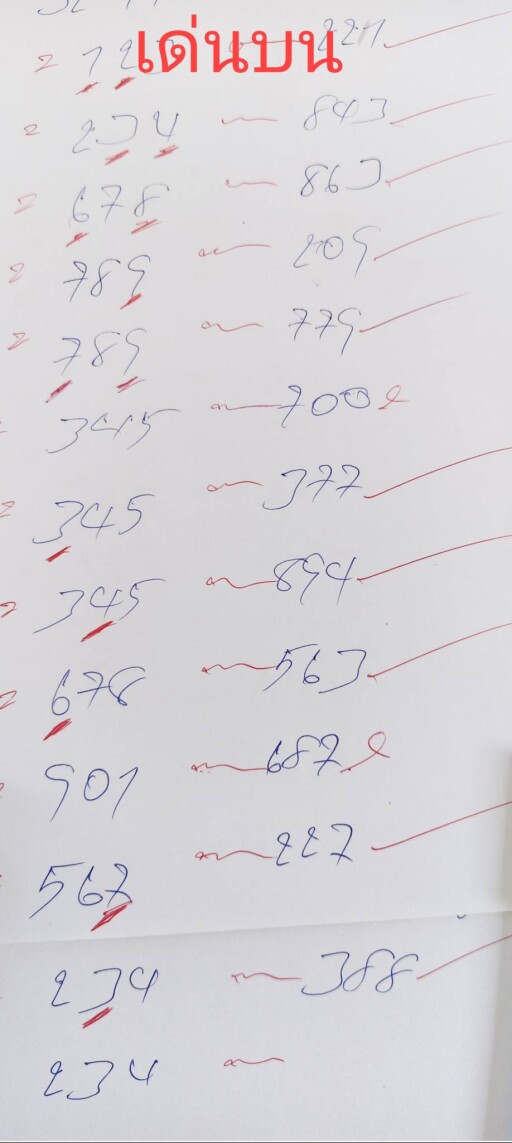 เด่นบน
= 123 221
= 234 — 843
= 678 — 863
= 789 — 209
= 789 — 779
345 — 700 e
= 345 — 377
= 345 — 894
= 678 — 563
901 — 687 e
567 — 227
234 — 388
234 —